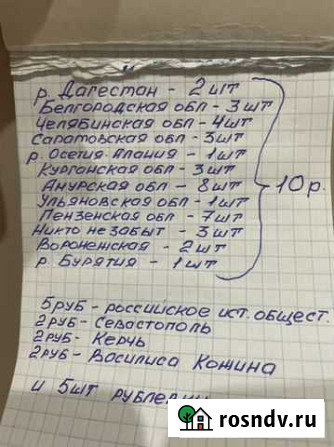 р. Дагестан - 2 шт
Белгородская обл - 3 шт
Челябинская обл - 4 шт
Саратовская обл - 3 шт
р. Осетия-Алания - 1 шт
Курганская обл - 3 шт
Амурская обл - 8 шт
Ульяновская обл - 1 шт
Пензенская обл - 7 шт
Никто не забыт - 3 шт
Воронежская - 2 шт
р. Бурятия - 1 шт
10 р.
5 руб - российское ист. общест.
2 руб - Севастополь
2 руб - Керчь
2 руб - Василиса Кожина
и 5 шт
rosndv.ru